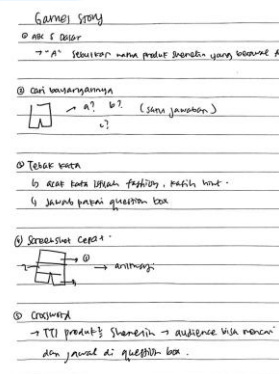 Games Story
① ABC 5 Dasar
→ "A" Sebutkan nama produk Shenelin yang berawal A
② Cari bayangannya
→ a? b? (satu jawaban)
c?
③ Tebak kata
↳ acak kata istilah fashion, kasih hint.
↳ Jawab pakai question box
④ Screenshot Cepat.
→ ①
2 →
→
⑤ Crossword
→ TTS produk² Shenelin → audience bisa mencari
dan jawab di question box.